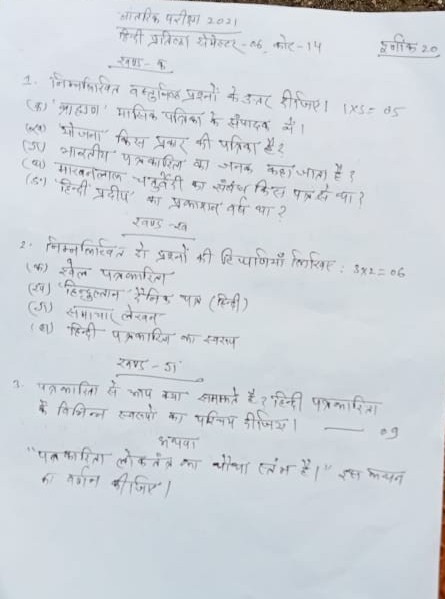 आंतरिक परीक्षा 2021
हिन्दी प्रतिष्ठा सेमेस्टर - 06, कोर - 14
पूर्णांक 20
खण्ड - क
1. निम्नलिखित वस्तुनिष्ठ प्रश्नों के उत्तर दीजिए। 1×5= 05
(क) 'ब्राह्मण' मासिक पत्रिका के संपादक थे।
(ख) योजना किस प्रकार की पत्रिका है?
(ग) भारतीय पत्रकारिता का जनक कहा जाता है?
(घ) माखनलाल चतुर्वेदी का संबंध किस पत्र से था?
(ङ) 'हिन्दी प्रदीप' का प्रकाशन वर्ष था?
खण्ड - ख
2. निम्नलिखित दो प्रश्नों की टिप्पणियाँ लिखिए: 3×2 = 06
(क) खेल पत्रकारिता
(ख) 'हिन्दुस्तान' दैनिक पत्र (हिन्दी)
(ग) समाचार लेखन
(घ) हिन्दी पत्रकारिता का स्वरूप
खण्ड - ग
3. पत्रकारिता से आप क्या समझते हैं? हिन्दी पत्रकारिता
के विभिन्न स्वरूपों का परिचय दीजिए। — 09
अथवा
"पत्रकारिता लोकतंत्र का चौथा स्तंभ है।" इस कथन
का वर्णन कीजिए।